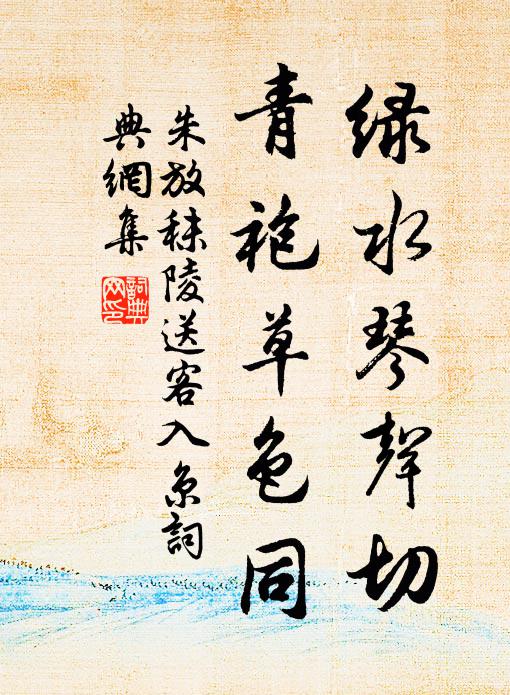 绿水琴聲切
青袍草色同
朱放秣陵送客入京詞
典網集
詞典
网印